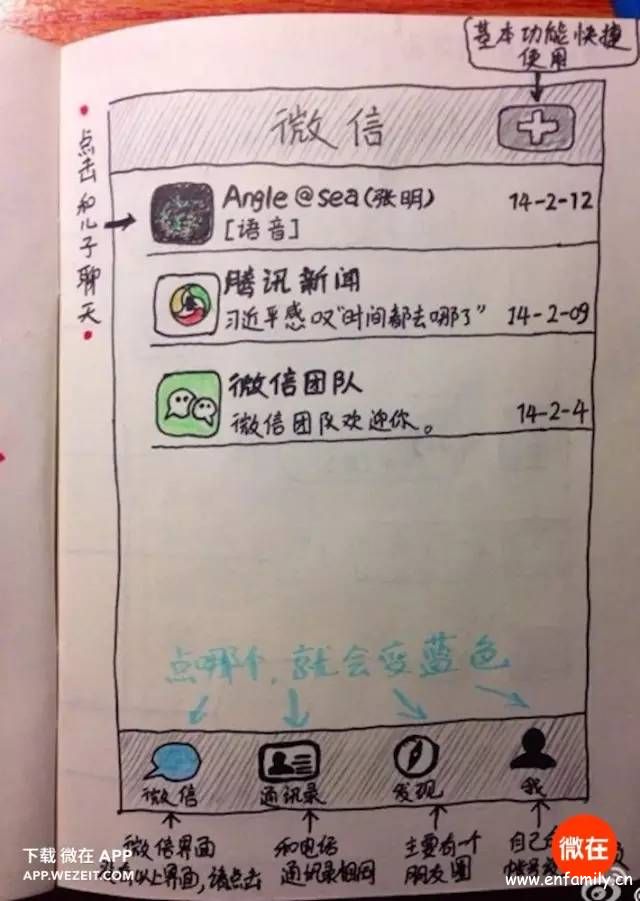 基本功能快捷
使用
微信
点击和儿子聊天
Angle@sea(张明)
14-2-12
[语音]
腾讯新闻
习近平感叹"时间都去哪了"
14-2-09
微信团队
微信团队欢迎你。
14-2-4
点哪个,就会变蓝色
微信
通讯录
发现
我
微信界面
以上界面,请点击
和电话
通讯录相同
主要有一个
朋友圈
自己
下载 微在 APP
APP.WEZEIT.COM
微在
www.enfamily.cn